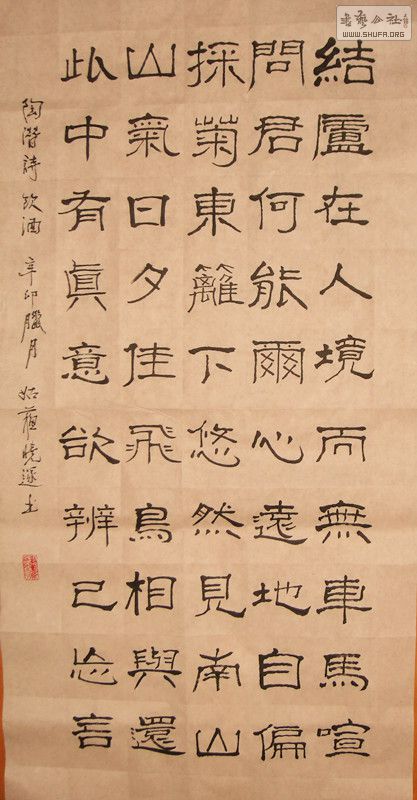 書藝公社
WWW.SHUFA.ORG
結廬在人境而無車馬喧
問君何能爾心遠地自偏
採菊東籬下悠然見南山
山氣日夕佳飛鳥相與還
此中有真意欲辨已忘言
陶潛詩飲酒 辛卯臘月